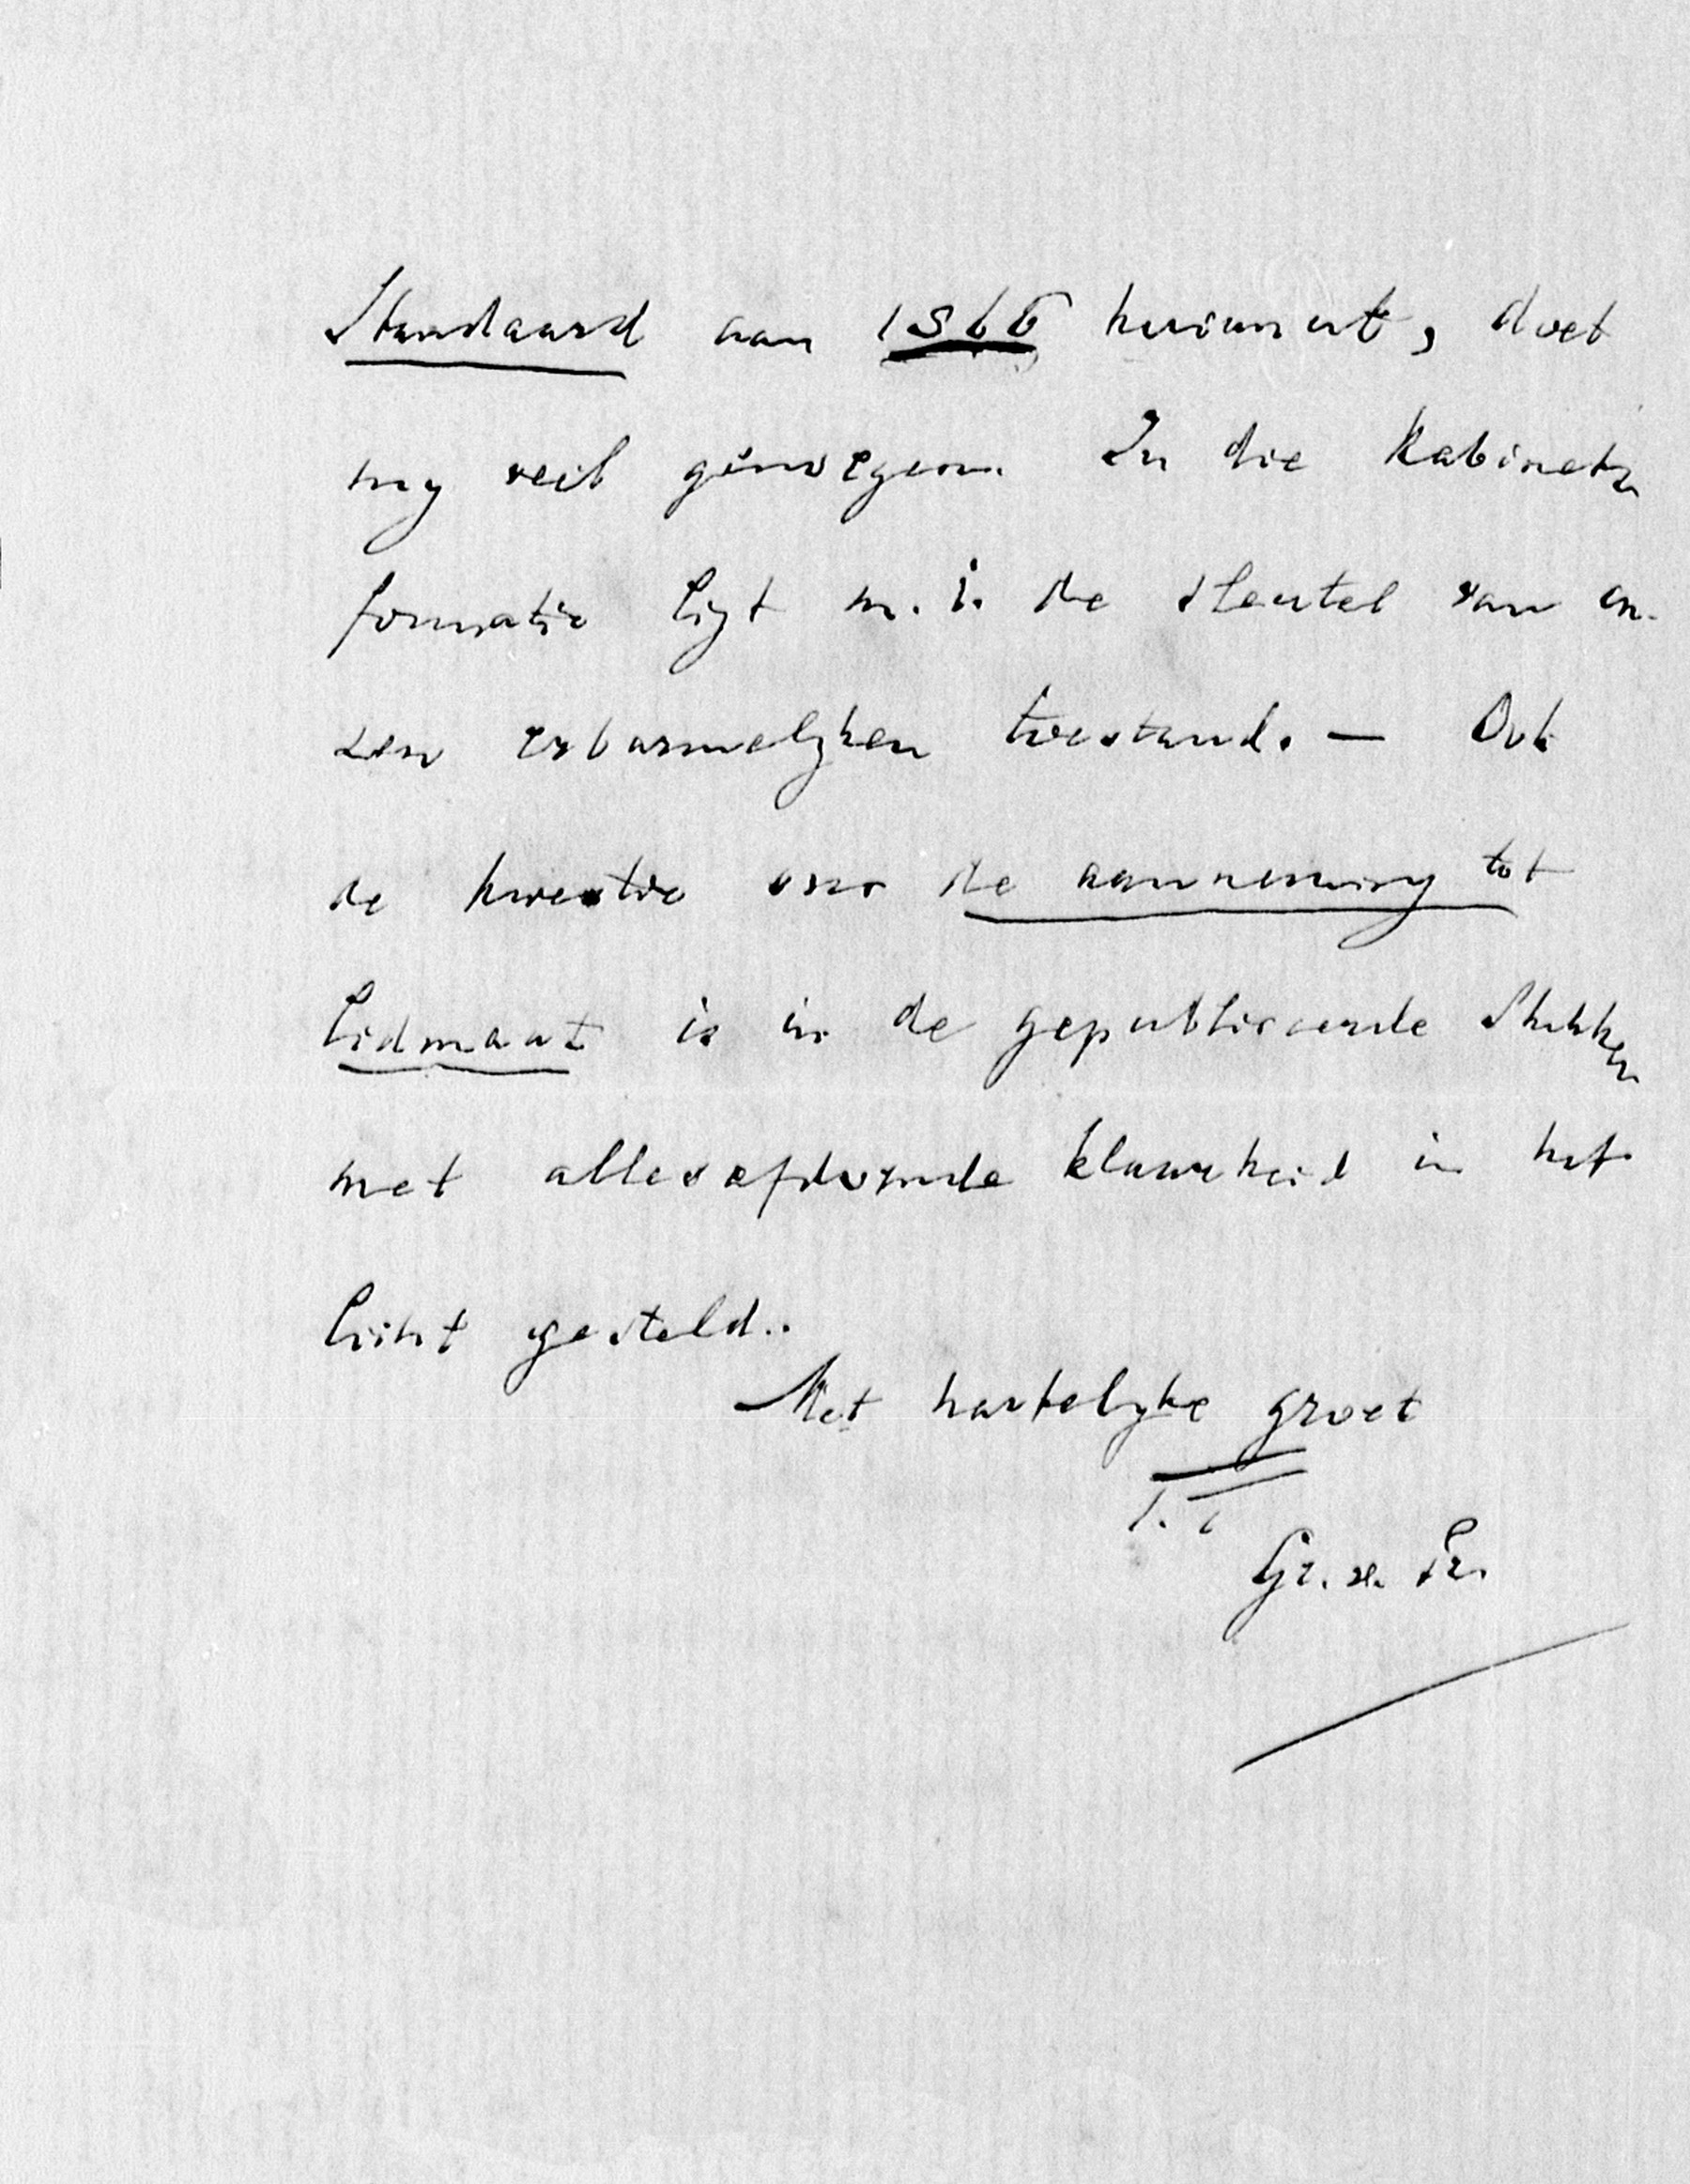 Standaard aan 1866 herinnert, doet
my veel genoegen. In die Kabinets
formatie ligt m.i. de sleutel van on-
zen erbarmelyken toestand. — Ook
de kwestie over de aanneming tot
Lidmaat is in de gepubliceerde Stukken
met allesafdoende klaarheid in het
licht gesteld.
Met hartelyke groet
T.T.
Gr. v. Pr.